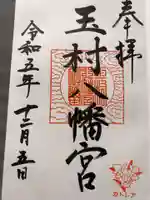 奉拝
玉村八幡宮
令和五年十二月五日